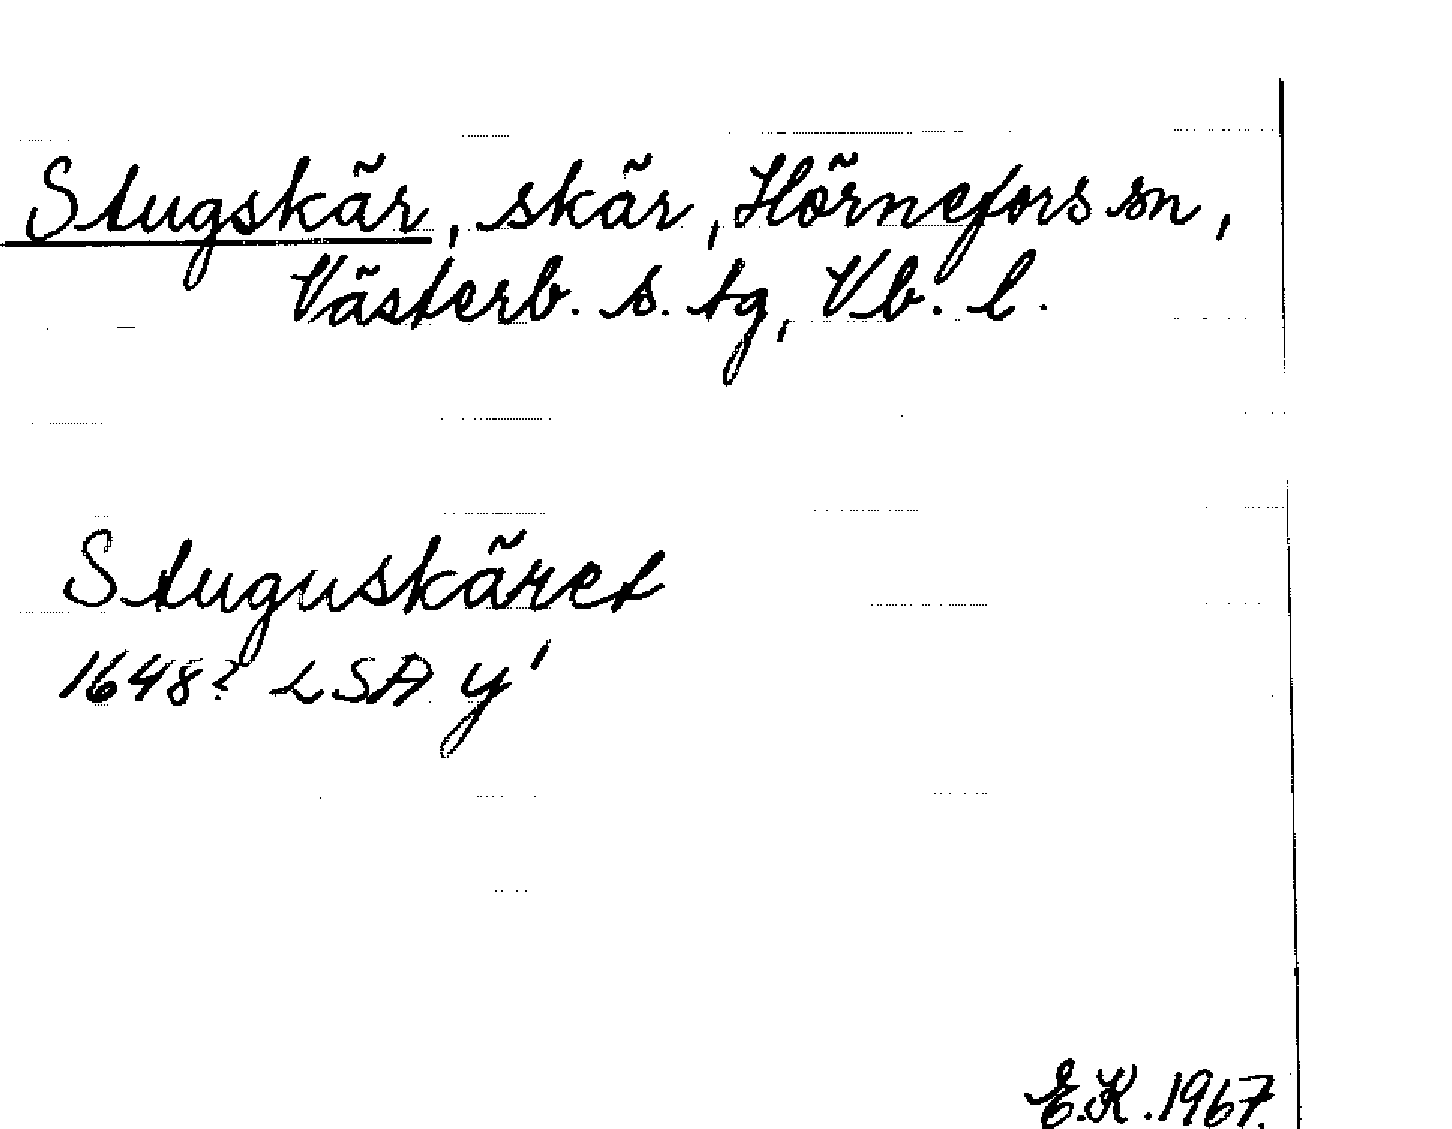 Stugskär, skär, Hörnefors sn,
Västerb. s. tg, Vb. l.
Stuguskäret
1648? LSA y'
E.K. 1967.